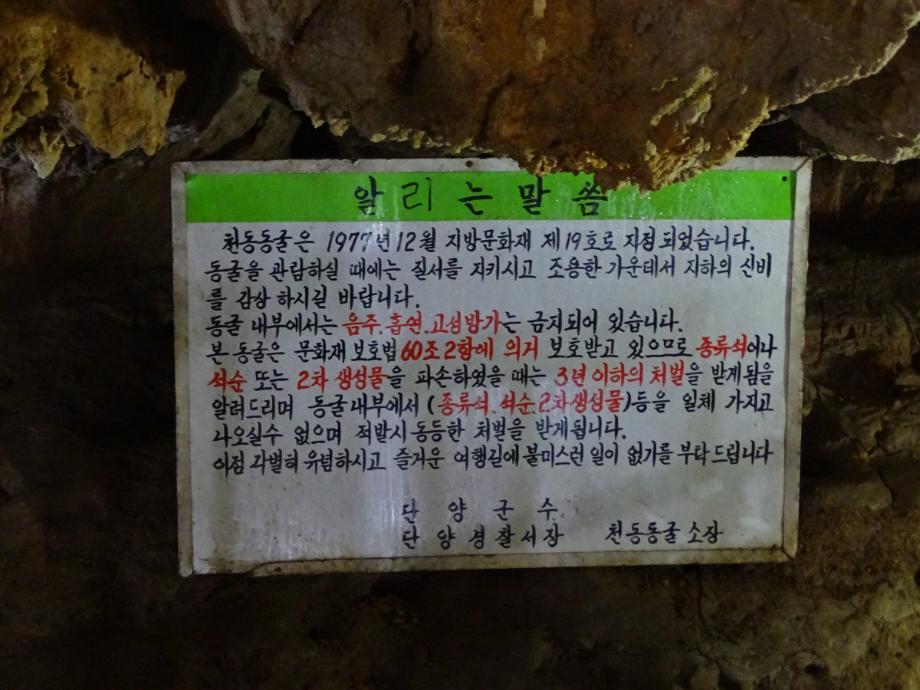 알리는 말씀
천동동굴은 1977년 12월 지방문화재 제19호로 지정되었습니다.
동굴을 관람하실 때에는 질서를 지키시고 조용한 가운데서 지하의 신비
를 감상 하시길 바랍니다.
동굴 내부에서는 음주.흡연.고성방가는 금지되어 있습니다.
본 동굴은 문화재 보호법 60조 2항에 의거 보호받고 있으므로 종류석이나
석순 또는 2차 생성물을 파손하였을 때는 3년 이하의 처벌을 받게됨을
알려드리며 동굴내부에서 (종류석.석순.2차생성물)등을 일체 가지고
나오실수 없으며 적발시 동등한 처벌을 받게됩니다.
이점 각별히 유념하시고 즐거운 여행길에 불미스런 일이 없기를 부탁드립니다
단양군수
단양경찰서장 천동동굴 소장